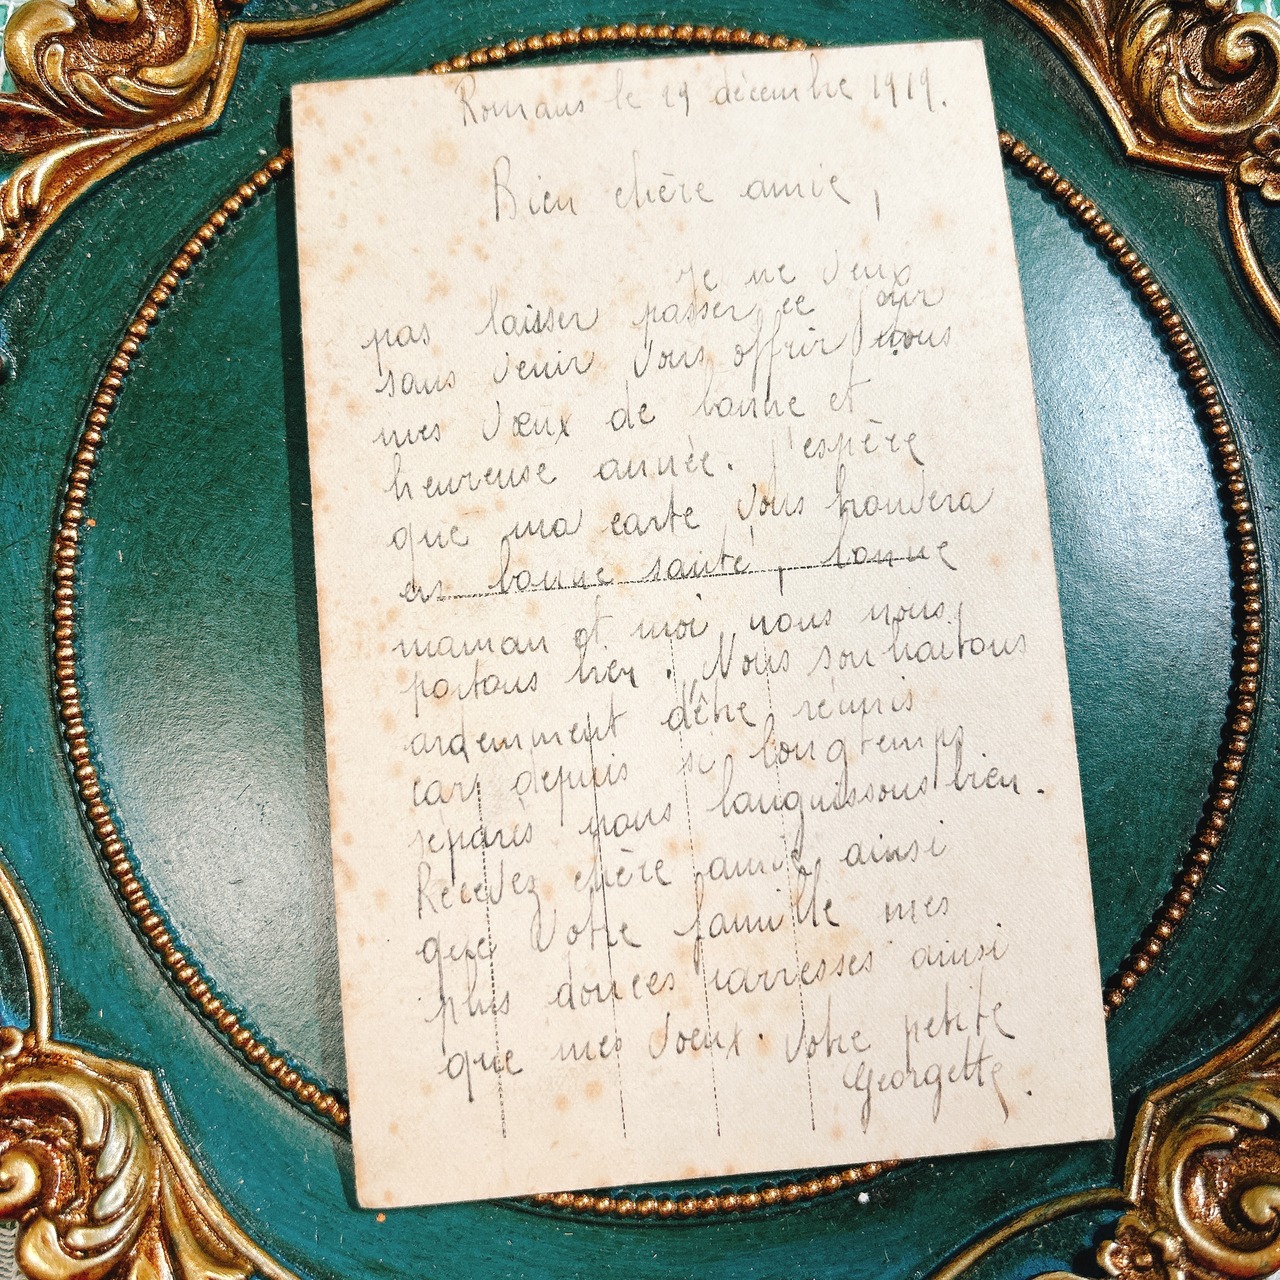 Romans le 29 décembre 1919.
Bien chère amie,
Je ne veux
pas laisser passer ce jour
sans venir vous offrir tous
mes vœux de bonne et
heureuse année. J'espère
que ma carte vous trouvera
en bonne santé, bonne
maman et moi nous nous
portons bien. Nous souhaitons
ardemment d'être réunis
car depuis si longtemps
séparés nous languissons bien.
Recevez chère amie ainsi
que votre famille mes
plus douces carresses ainsi
que mes voeux. Votre petite
Georgette.